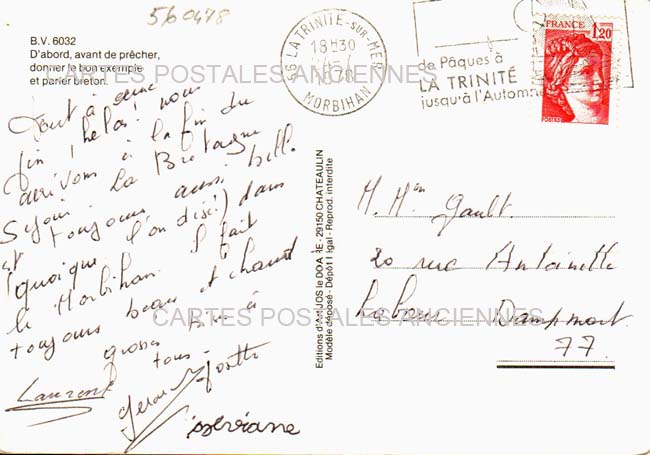 560478
B.V. 6032
D'abord, avant de prêcher,
donner le bon exemple
et parler breton.
56 LA TRINITE-SUR-MER
18H30
1978
MORBIHAN
de Pâques à
LA TRINITÉ
jusqu'à l'Automne
FRANCE
1,20
POSTES
CARTES POSTALES ANCIENNES
Tout a une
fin! hélas! nous
arrivons à la fin du
séjour. La Bretagne
est toujours aussi belle
(quoique l'on dise!) dans
le Morbihan. Il fait
toujours beau et chaud
grosses Bises à
tous.
Laurent
isseviane
Editions d'Art JOS le DOARE - 29150 CHATEAULIN
Modèle déposé - Dépôt légal - Reprod. interdite
M. Men Gault.
20 rue Antoinette
Dampmart.
77.
CARTES POSTALES ANCIENNES